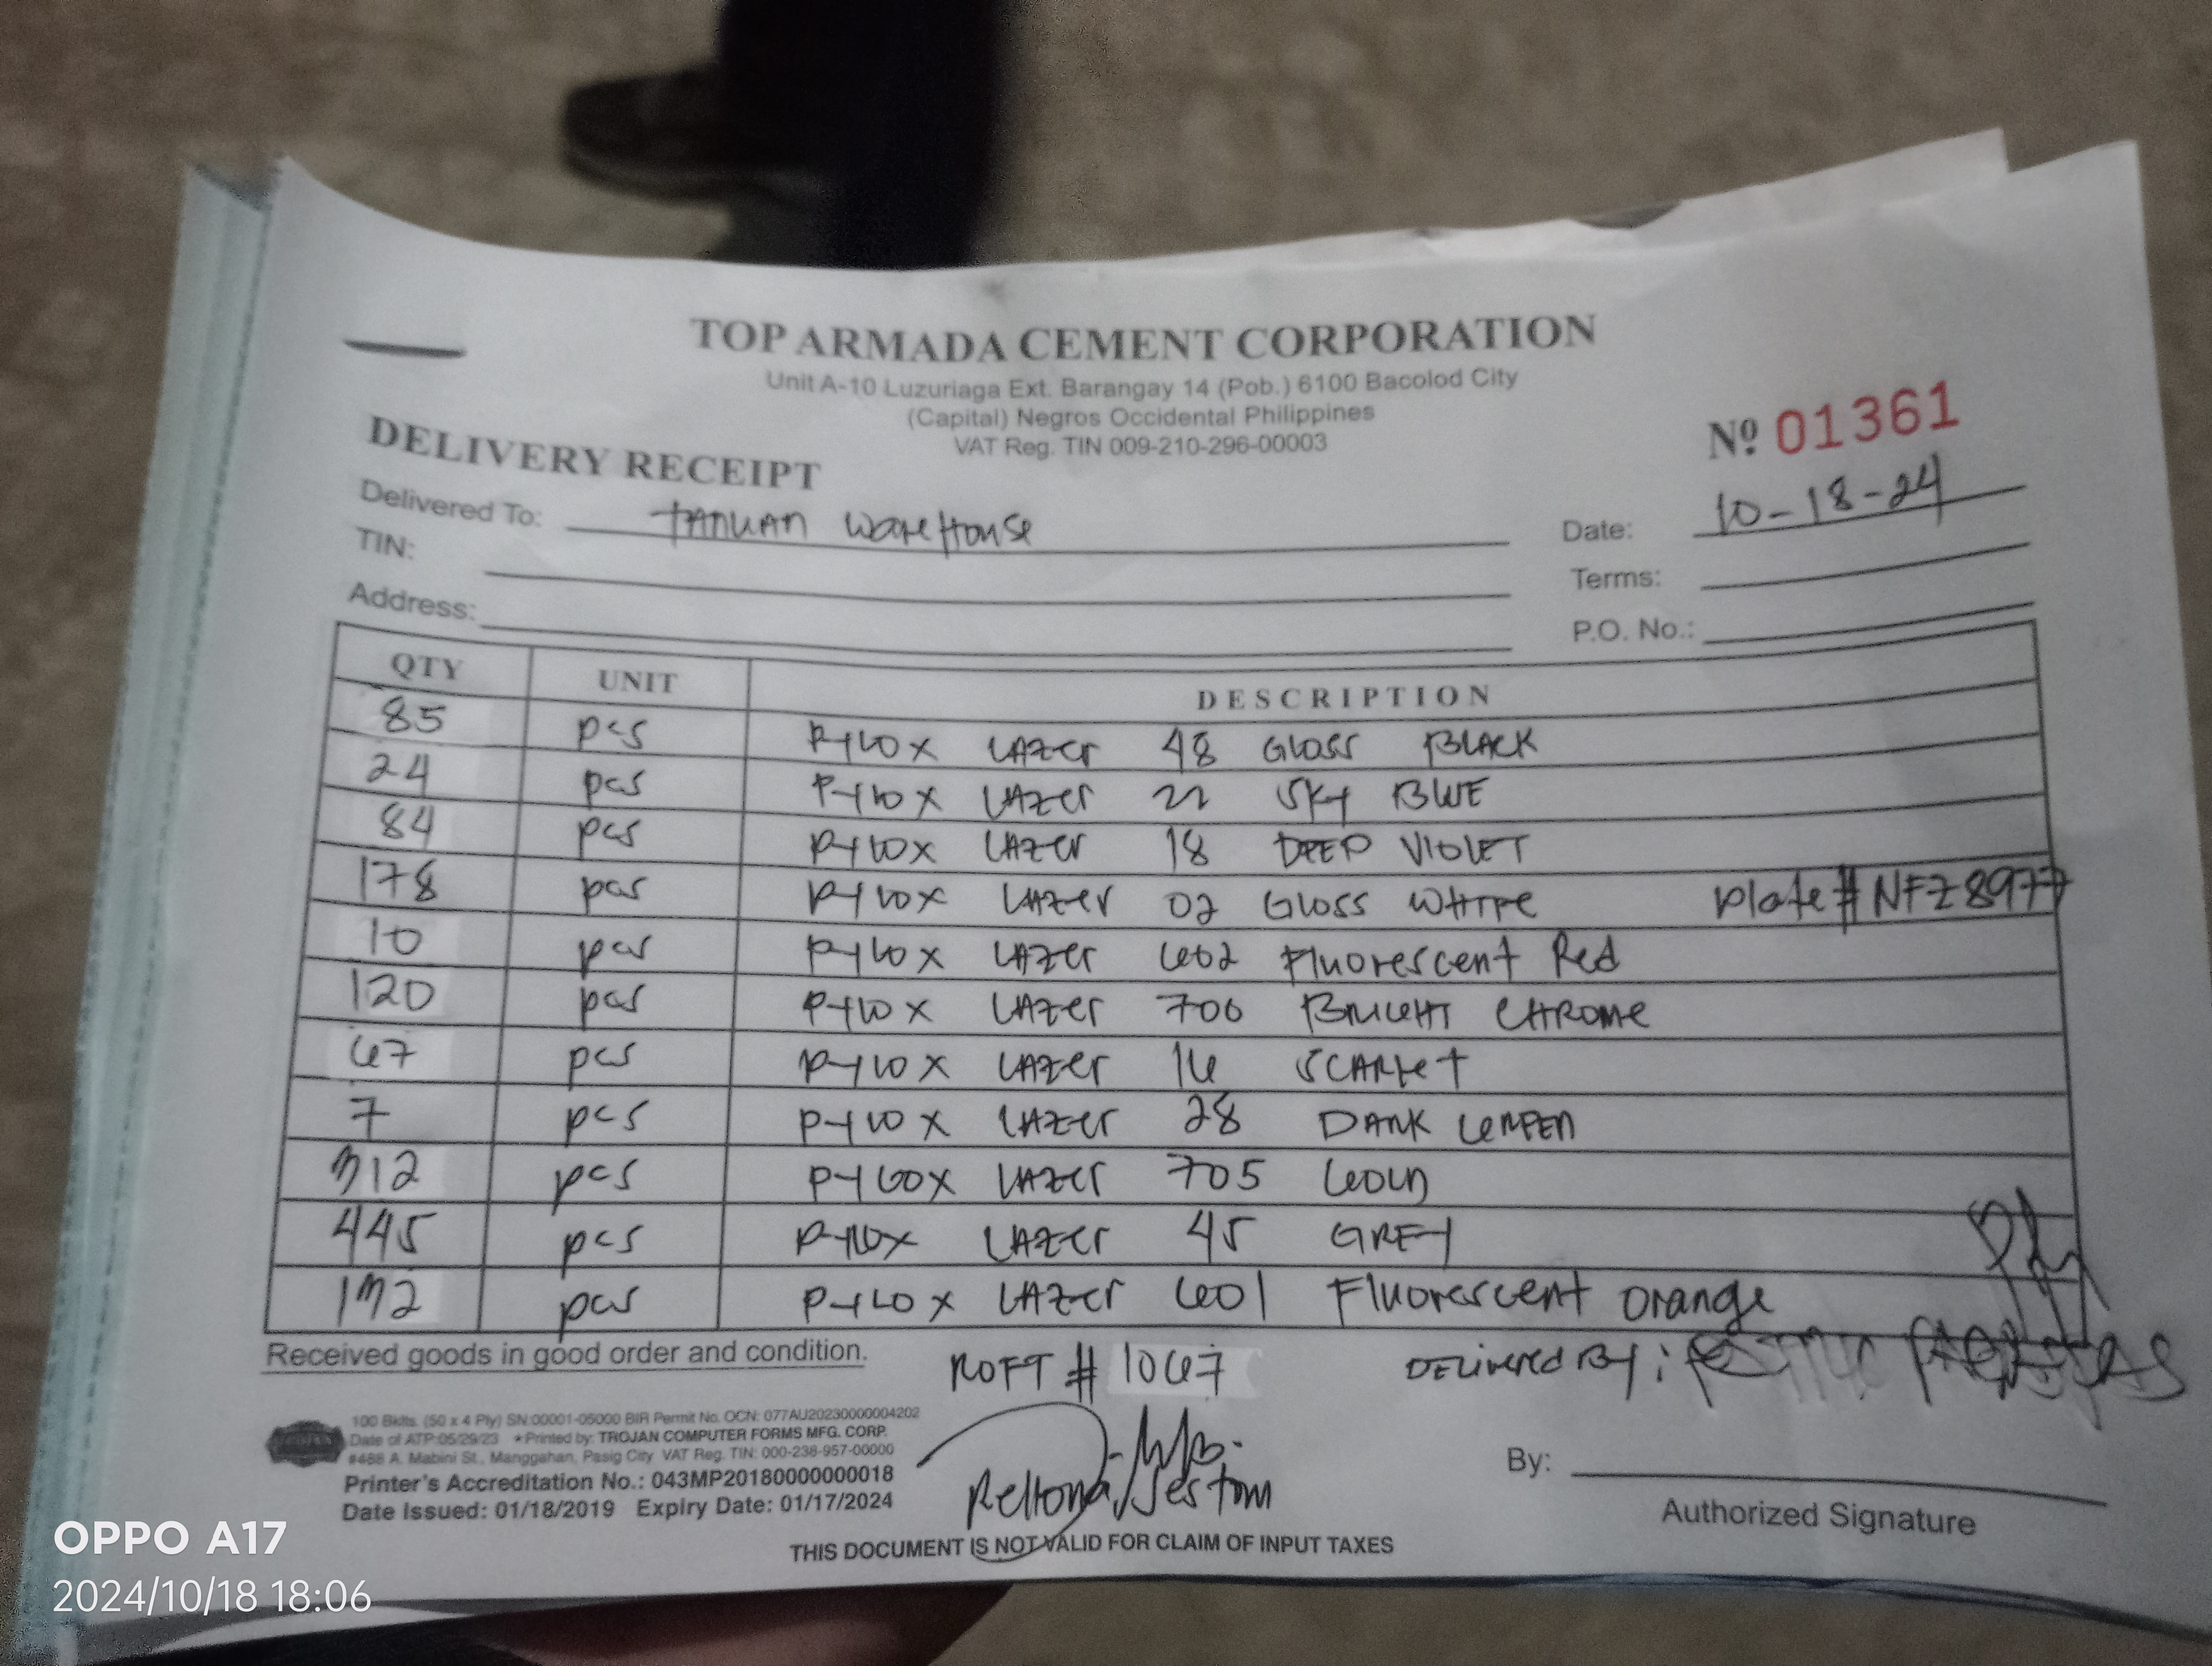 TOP ARMADA CEMENT CORPORATION
Unit A-10 Luzuriaga Ext. Barangay 14 (Pob.) 6100 Bacolod City
(Capital) Negros Occidental Philippines
VAT Reg. TIN 009-210-296-00003
Nº 01361
DELIVERY RECEIPT
Delivered To: TANUAN WareHouse
Date: 10-18-24
TIN:
Terms:
Address:
P.O. No.:
QTY UNIT DESCRIPTION
85 pcs PYLOX LAZER 48 GLOSS BLACK
24 pcs PYLOX LAZER 22 SKY BLUE
84 pcs PYLOX LAZER 18 DEEP VIOLET
178 pcs PYLOX LAZER 02 GLOSS WHITE Plate # NFZ 8977
10 pcs PYLOX LAZER 602 Fluorescent Red
120 pcs PYLOX LAZER 700 BRIGHT CHROME
67 pcs PYLOX LAZER 16 SCARLET
7 pcs PYLOX LAZER 28 DARK GREEN
312 pcs PYLOX LAZER 705 GOLD
445 pcs PYLOX LAZER 45 GREY
132 pcs PYLOX LAZER 601 Fluorescent Orange
Received goods in good order and condition.
ROFT # 1067
DELIVERED BY:
100 Bklts. (50 x 4 Ply) SN:00001-05000 BIR Permit No. OCN: 077AU20230000004202
Date of ATP:05/29/23 * Printed by: TROJAN COMPUTER FORMS MFG. CORP.
#488 A. Mabini St., Manggahan, Pasig City VAT Reg. TIN: 000-238-957-00000
Printer's Accreditation No.: 043MP20180000000018
Date Issued: 01/18/2019 Expiry Date: 01/17/2024
By:
Authorized Signature
THIS DOCUMENT IS NOT VALID FOR CLAIM OF INPUT TAXES
OPPO A17
2024/10/18 18:06